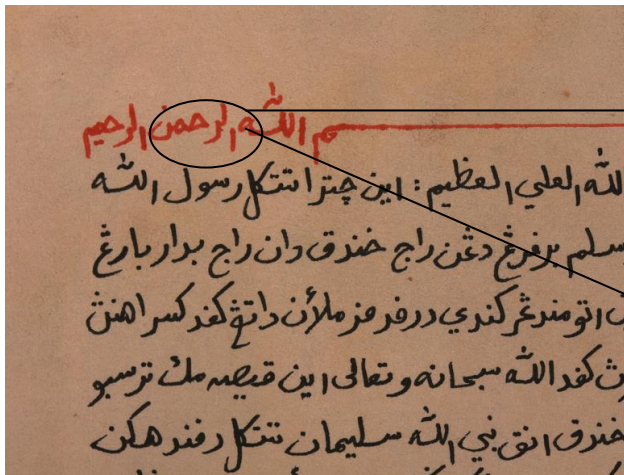 م الله الرحمن الرحيم
لله العلي العظيم : اين چترا تتكل رسول الله
سلم برفرڠ دڠن راج خندق دان راج بدار بارڠ
اتو مندڠر كندي داتڠ كفد
كفد الله سبحانه وتعالى اين قيصه مك ترسبو
خندق انق نبي الله سليمان تتكل دفندهكن